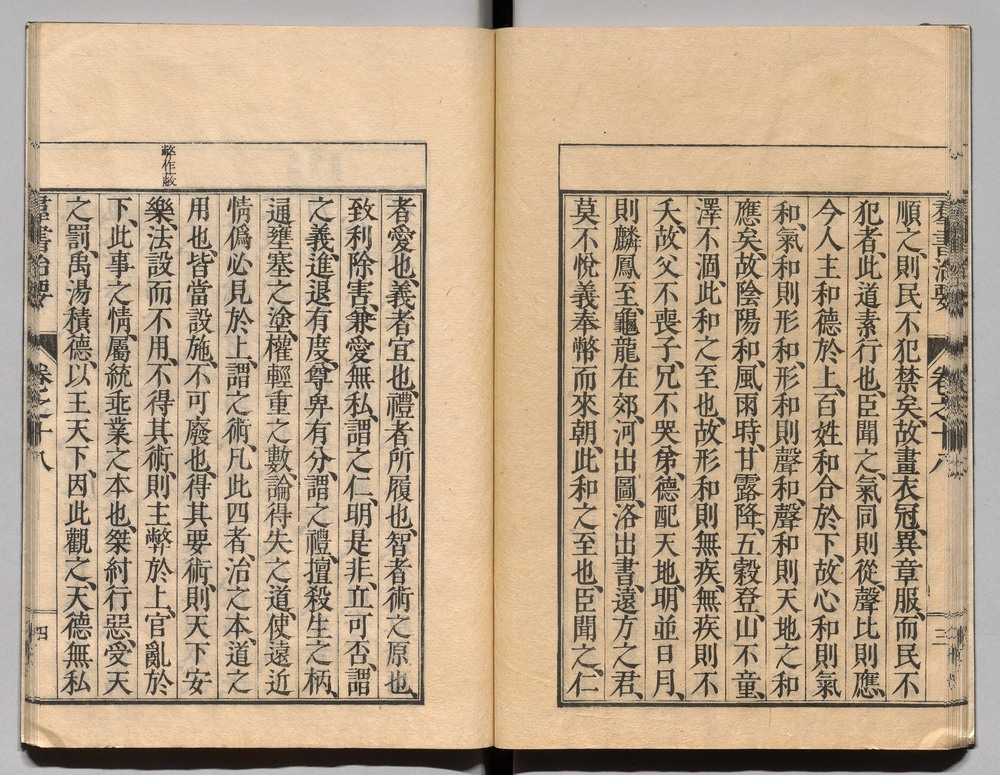 羣書治要 卷之十八 三
順之、則民不犯禁矣、故畫衣冠、異章服、而民不
犯者、此道素行也、臣聞之、氣同則從、聲比則應、
今人主和德於上、百姓和合於下、故心和則氣
和、氣和則形和、形和則聲和、聲和則天地之和
應矣、故陰陽和、風雨時、甘露降、五穀登、山不童、
澤不涸、此和之至也、故形和則無疾、無疾則不
夭、故父不喪子、兄不哭弟、德配天地、明並日月、
則麟鳳至、龜龍在郊、河出圖、洛出書、遠方之君、
莫不悅義奉幣而來朝、此和之至也、臣聞之、仁
者愛也、義者宜也、禮者所履也、智者術之原也、
致利除害、兼愛無私、謂之仁、明是非、立可否、謂
之義、進退有度、尊卑有分、謂之禮、擅殺生之柄、
通壅塞之塗、權輕重之數、論得失之道、使遠近
情僞必見於上、謂之術、凡此四者、治之本、道之
用也、皆當設施、不可廢也、得其要術、則天下安
樂、法設而不用、不得其術、則主弊於上、官亂於
弊作蔽
下、此事之情、屬統垂業之本也、桀紂行惡、受天
之罰、禹湯積德、以王天下、因此觀之、天德無私
羣書治要 卷之十八 四